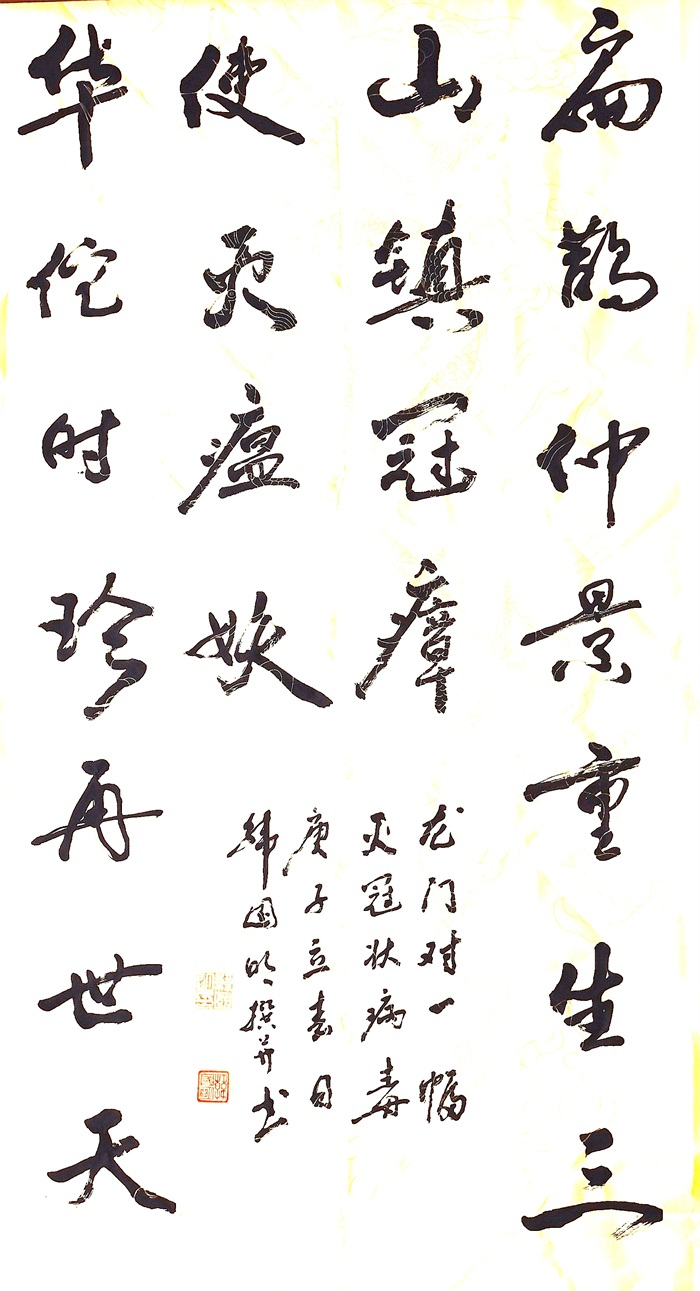 扁鹊仲景重生三
山镇冠瘴
华佗时珍再世天
使灭瘟妖
龙门对一幅
灭冠状病毒
庚子立春日
韩国明撰并书